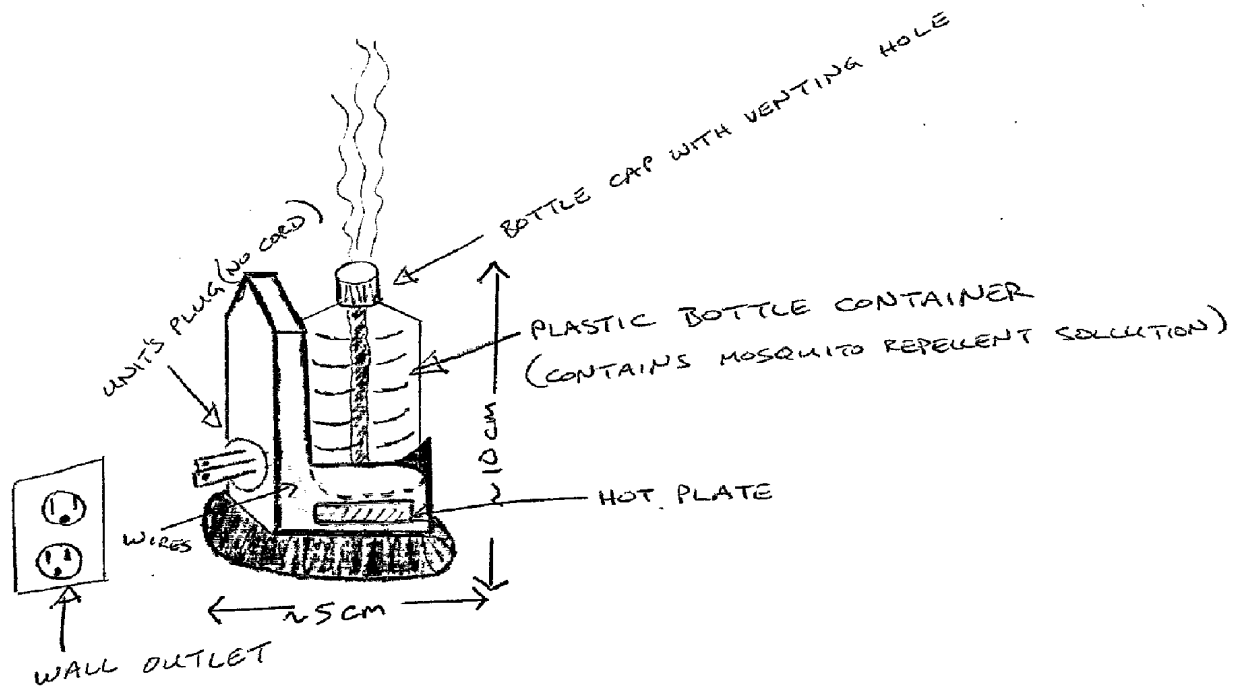 BOTTLE CAP WITH VENTING HOLE
UNIT'S PLUG (NO CORD)
PLASTIC BOTTLE CONTAINER
(CONTAINS MOSQUITO REPELLENT SOLLUTION)
~10CM
HOT PLATE
WIRES
~5CM
WALL OUTLET